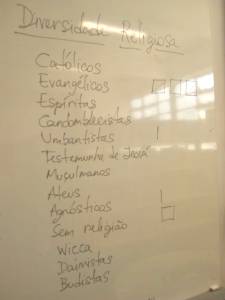 Diversidade Religiosa
Católicos
Evangélicos
Espíritas
Candombleecistas
Umbantistas
Testemunha de Jeová
Muçulmanos
Ateus
Agnósticos
Sem religião
Wicca
Daimistas
Budistas